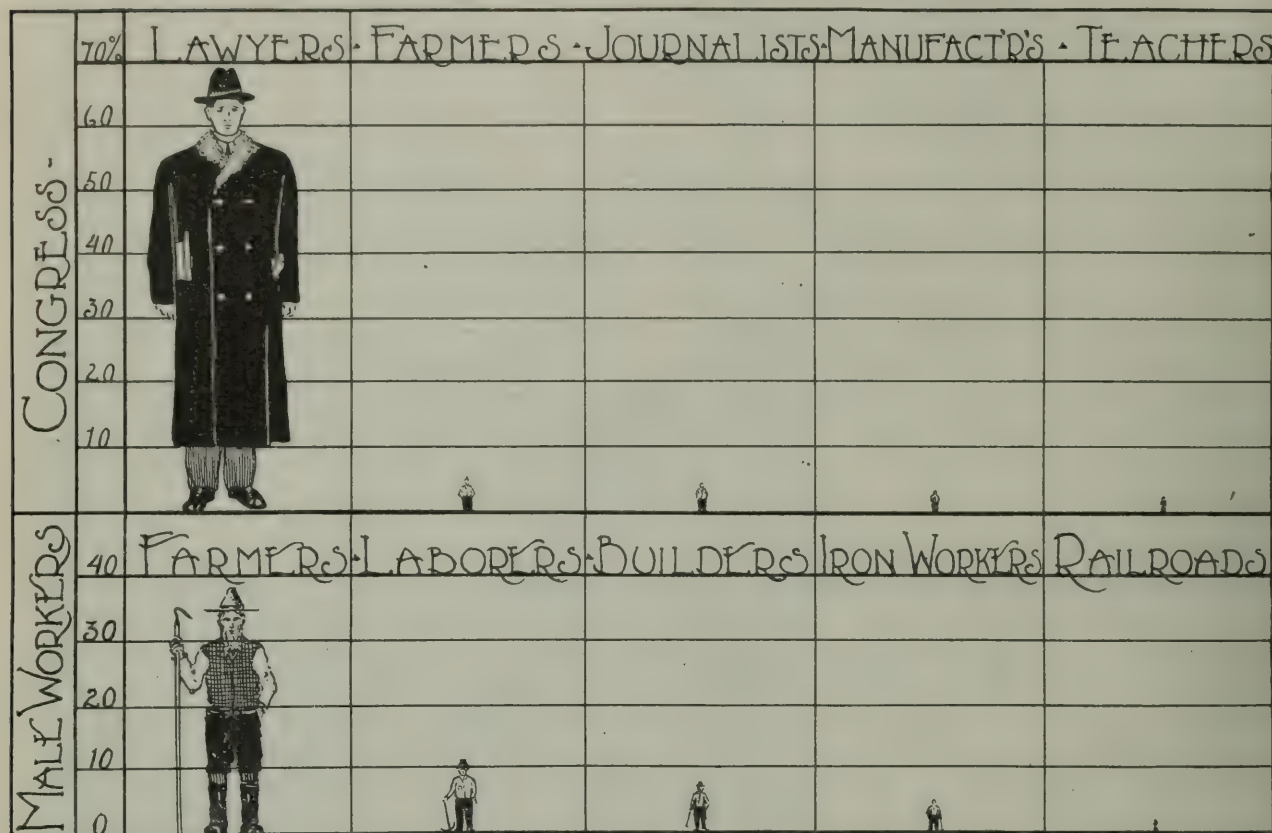 CONGRESS-
70% LAWYERS · FARMERS · JOURNALISTS · MANUFACT'R'S · TEACHERS
60
50
40
30
20
10
MALE WORKERS
40 FARMERS · LABORERS · BUILDERS IRON WORKERS RAILROADS
30
20
10
0